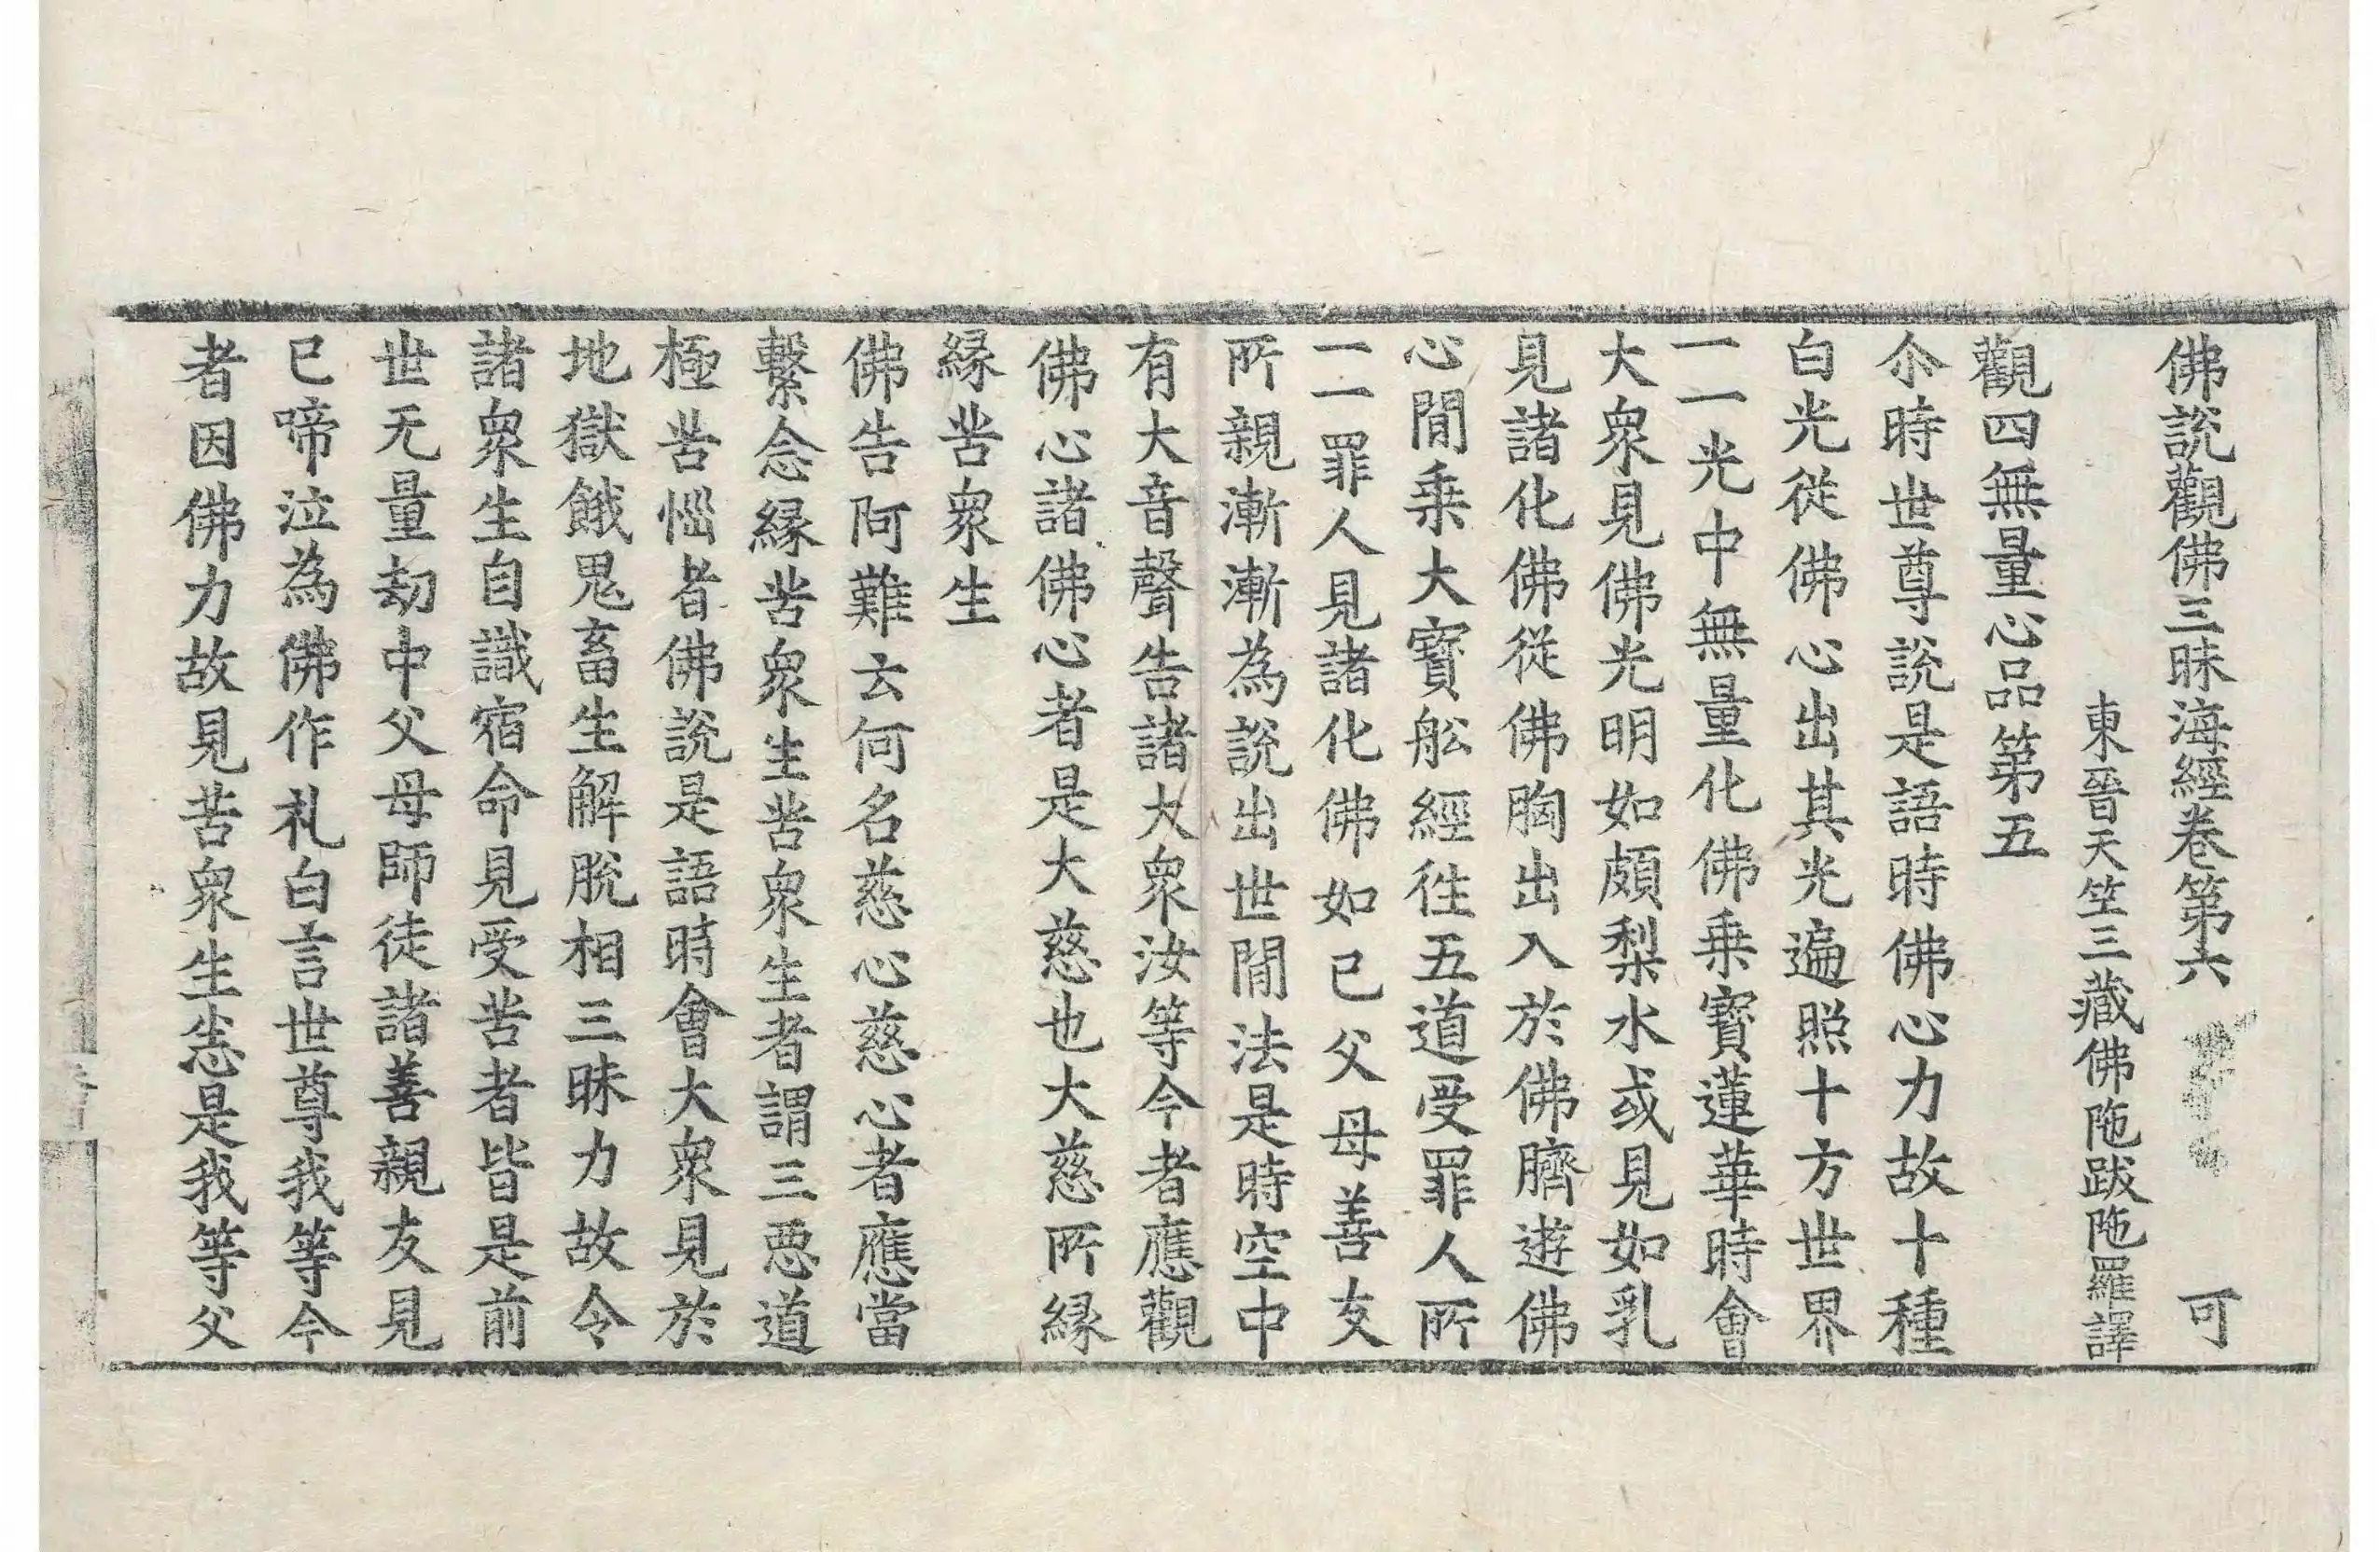 佛説觀佛三昧海經卷第六 可
東晉天竺三藏佛陁跋陁羅譯
觀四無量心品第五
尒時世尊説是語時佛心力故十種
白光從佛心出其光遍照十方世界
一一光中無量化佛乗寶蓮華時會
大衆見佛光明如頗梨水或見如乳
見諸化佛從佛胸出入於佛臍遊佛
心間乗大寶舩經往五道受罪人所
一一罪人見諸化佛如己父母善友
所親漸漸為説出世間法是時空中
有大音聲告諸大衆汝等今者應觀
佛心諸佛心者是大慈也大慈所縁
縁苦衆生
佛告阿難云何名慈心慈心者應當
繫念縁苦衆生苦衆生者謂三惡道
極苦惱者佛説是語時會大衆見於
地獄餓鬼畜生解脱相三昧力故令
諸衆生自識宿命見受苦者皆是前
世无量劫中父母師徒諸善親友見
已啼泣為佛作礼白言世尊我等今
者因佛力故見苦衆生恙是我等父